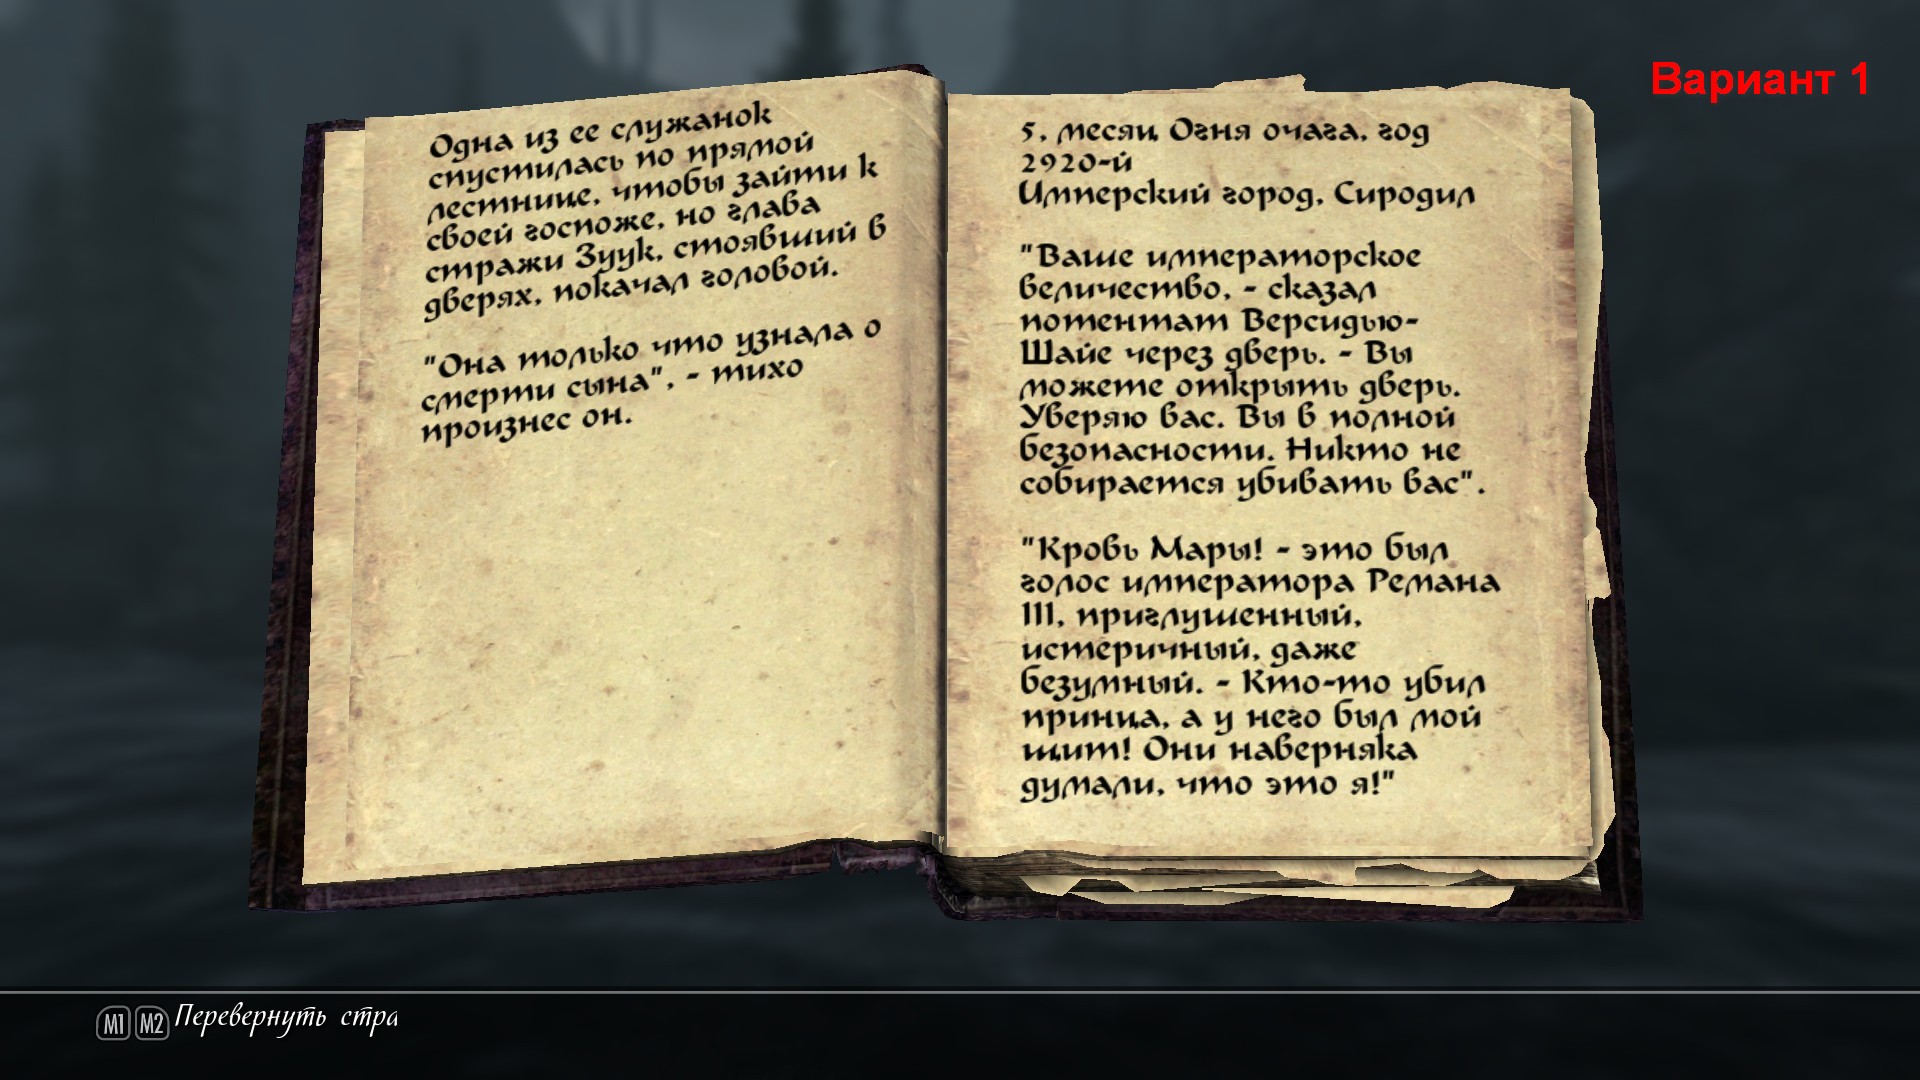 Вариант 1
Одна из ее служанок
спустилась по прямой
лестнице, чтобы зайти к
своей госпоже, но глава
стражи Зуук, стоявший в
дверях, покачал головой.
"Она только что узнала о
смерти сына", - тихо
произнес он.
5, месяц Огня очага, год
2920-й
Имперский город, Сиродил
"Ваше императорское
величество, - сказал
потентат Версидью-
Шайе через дверь. - Вы
можете открыть дверь.
Уверяю вас. Вы в полной
безопасности. Никто не
собирается убивать вас".
"Кровь Мары! - это был
голос императора Ремана
III, приглушенный,
истеричный, даже
безумный. - Кто-то убил
принца, а у него был мой
щит! Они наверняка
думали, что это я!"
M1 M2 Перевернуть стра